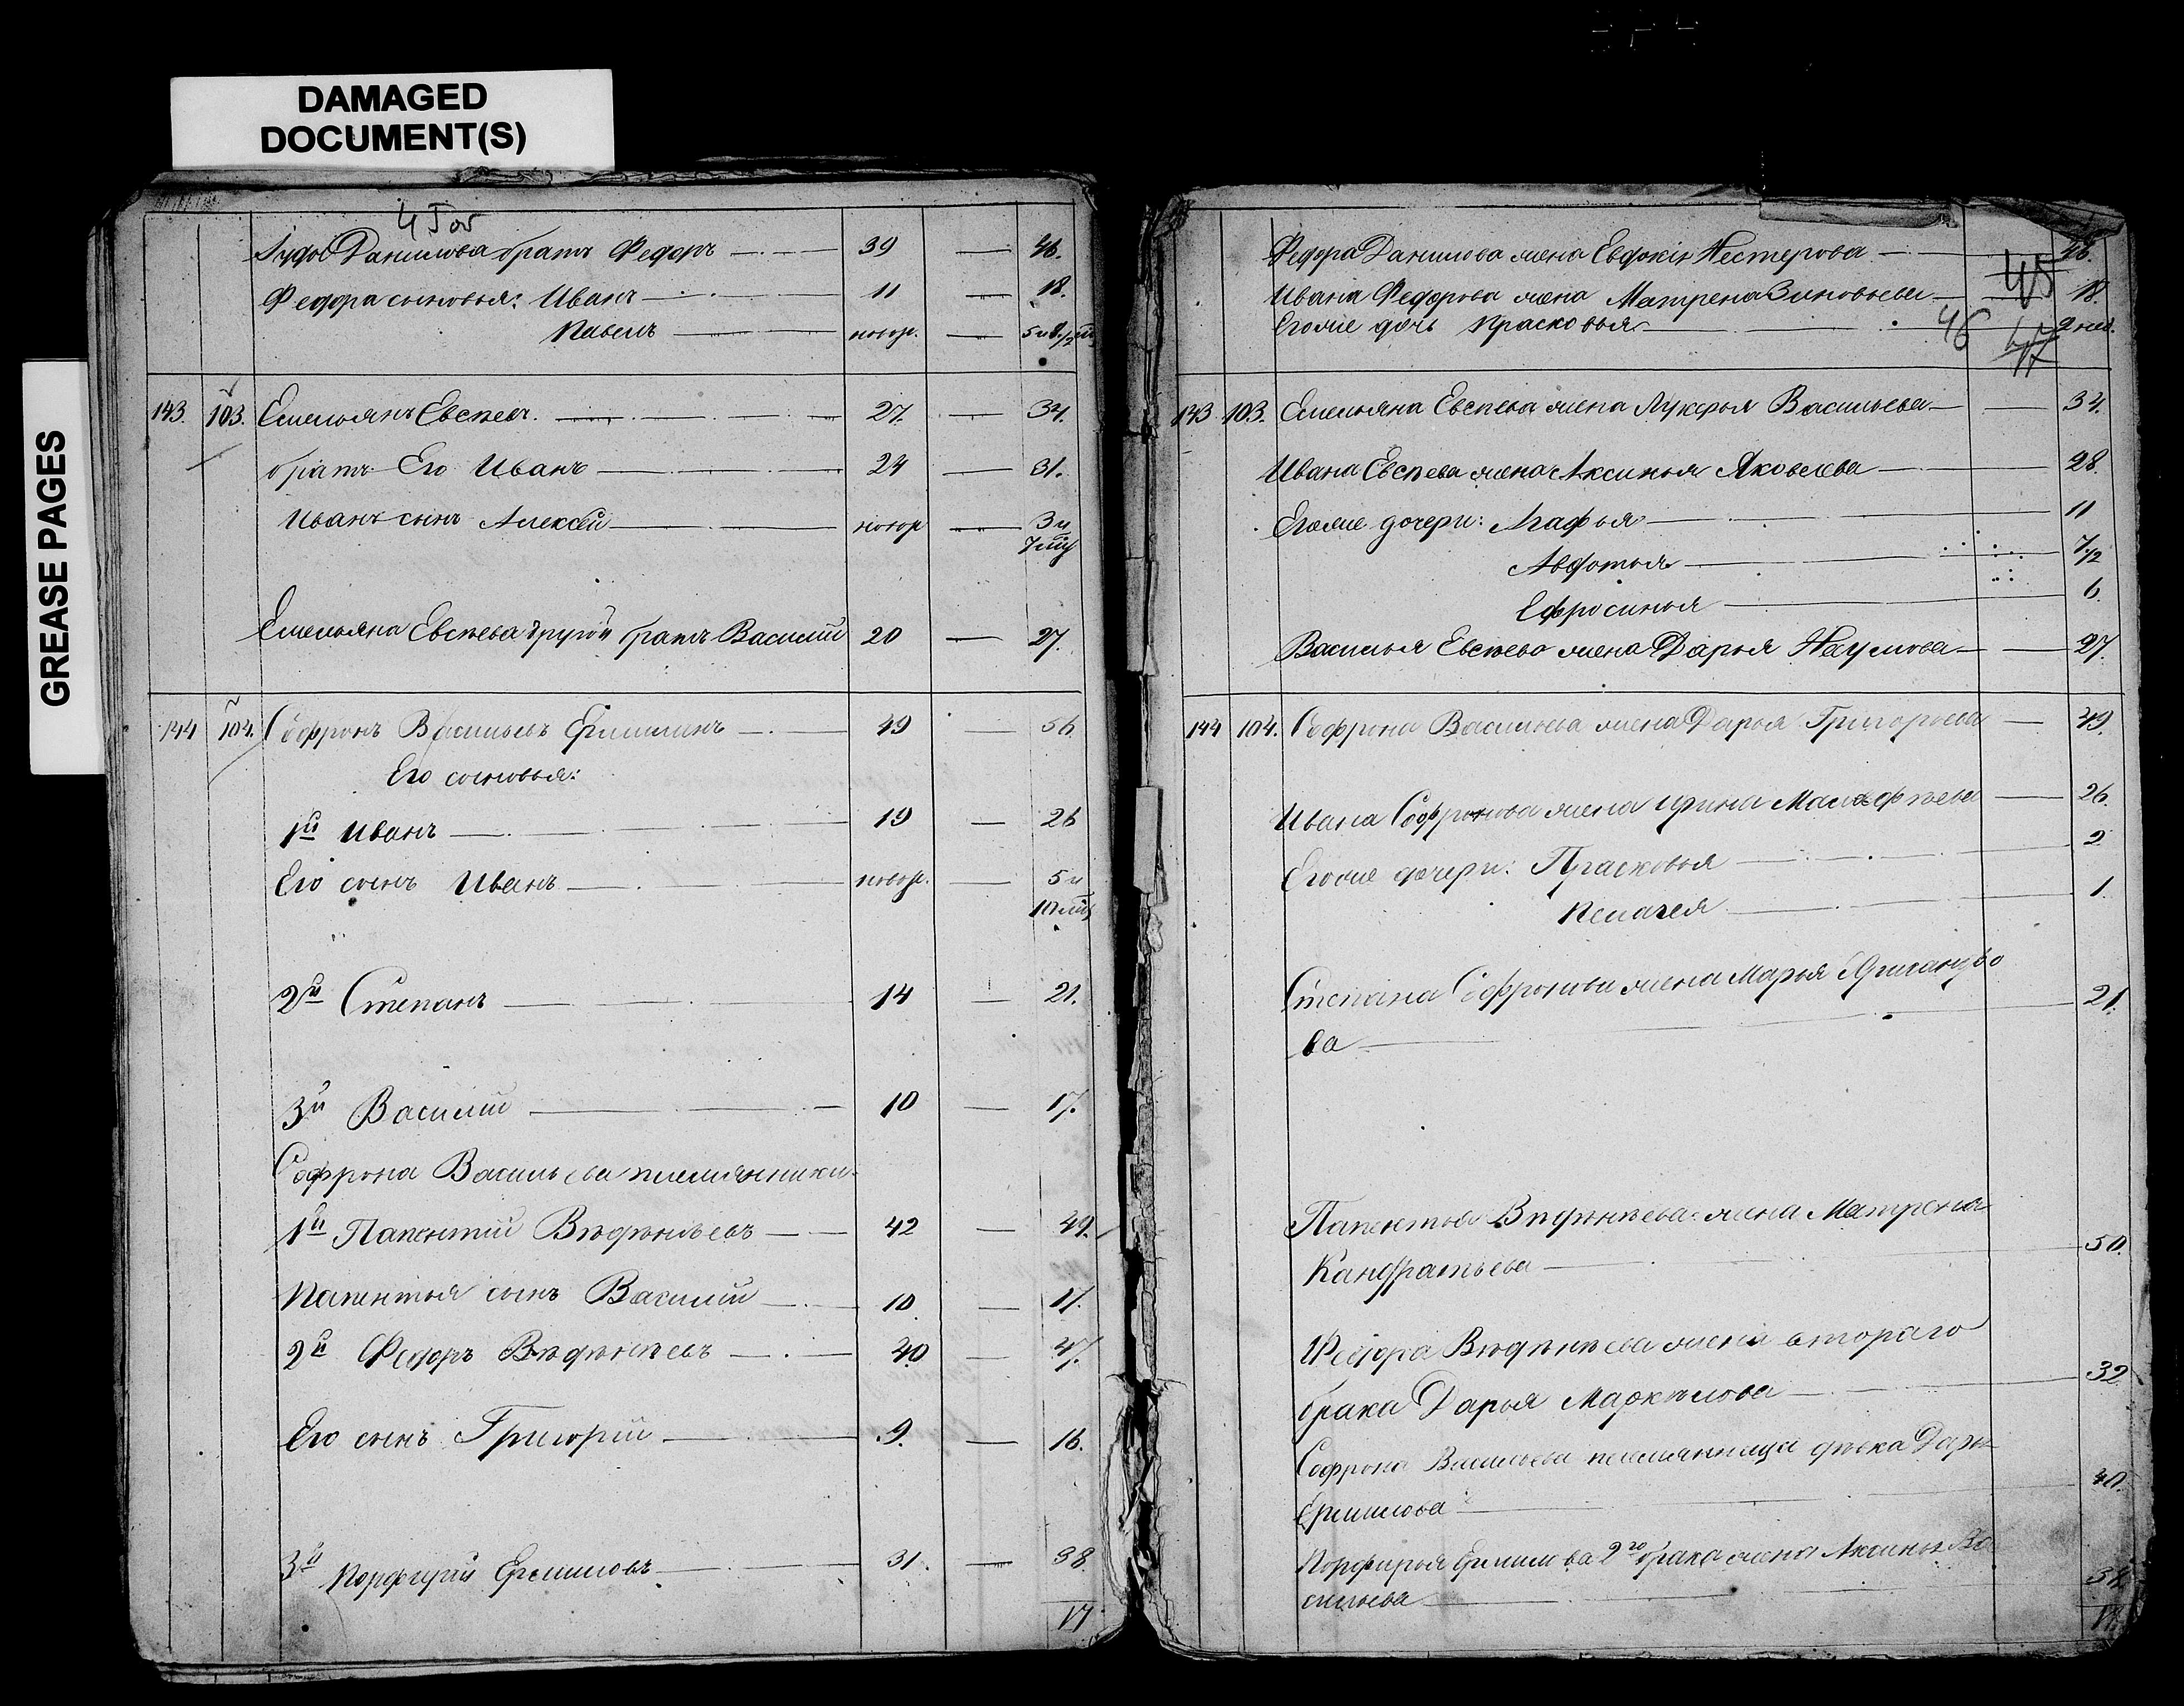 DAMAGED
DOCUMENT(S)
GREASE PAGES
Данилова братъ Федоръ 39 46.
Федора сыновья: Иванъ 11 18.
Павелъ новор.
143. 103. Емельянъ Евсѣевъ. 27. 34.
братъ Его Иванъ 24 31.
Иванъ сынъ Алексѣй новор 3 и
7 мѣс
Емельяна Евсѣева другой братъ Василій 20 27.
144 104. Софронъ Васильевъ 49 56
Его сыновья:
1й Иванъ 19 26
Его сынъ Иванъ новор. 5 и
10 мѣс
2й Степанъ 14 21.
3й Василій 10 17.
Софрона Васильева племянники
1й Папентій 42 49.
Папентья сынъ Василій 10 17.
2й Федоръ 40 47.
Его сынъ Григорій 9. 16.
3й Порфирій Ермиловъ 31. 38
17
Федора Данилова жена Евдокія Нестерова 46.
45
Ивана Федорова жена Матрена Зиновьева 18
Егоже дочь Прасковья 2 нед.
46 47
143 103. Емельяна Евсѣева жена Лукерья Васильева 34.
Ивана Евсѣева жена Аксинья Яковлева 28.
Егоже дочери: Агафья 11
Авдотья 7 1/2
Ефросинья 6
Василья Евсѣева жена Дарья Наумова 27
144 104. Софрона Васильева жена Дарья Григорьева 49.
Ивана Софронова жена Ирина 26.
Егоже дочери: Прасковья 2
Пелагея 1.
Степана Софронова жена Марья
ва 21.
Папентья жена Матрена
Кандратьева 50.
Федора жена втораго
брака Дарья Маркѣлова 32
Софрона Васильева племянница дѣвка Дарья
Ермилова 40.
Порфирья Ермилова 2го брака жена Аксинья Ва
сильева
17.